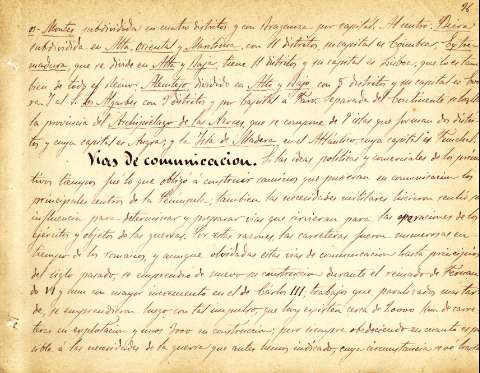 96
os-Montes subdividida en cuatro distritos y con Braganza por capital. Al centro: Beira
subdividida en Alta, oriental y Maritima, con 11 distritos, su capital es Coimbra. Extre-
madura, que se divide en Alta y Baja, tiene 11 distritos y su capital es Lisboa, que lo es tam-
bien de todo el Reino. Alentejo, dividido en Alto y Bajo, con 5 distritos y su capital es Evo-
ra. Y al S. los Algarbes con distritos y por capital á Faro. Separada del Continente se halla
la provincia del Archipielago de las Azores que se compone de 9 islas que forman dos distri-
tos, y cuya capital es Angra; y la Isla de Madera en el Atlántico, cuya capital es Funchal.
Vias de comunicacion. Si las ideas politicas y comerciales de los primi-
tivos tiempos fué lo que obligó á construir caminos que pusieran en comunicacion los
principales centros de la Peninsula, tambien las necesidades militares hicieron sentir su
influencia para determinar y preparar vias que sirvieran para las operaciones de los
Ejércitos y objetos de las guerras. Por estas razones, las carreteras fueron numerosas en
tiempo de los romanos, y aunque olvidadas estas vias de comunicacion hasta principios
del siglo pasado, se emprendió de nuevo su construccion durante el reinado de Fernan-
do VI y aun con mayor incremento en el de Carlos III; trabajos que, paralizados mas tar-
de, se emprendieron luego con tal impulso, que hoy existen cerca de 20000 Km de carre-
teras en explotacion y unos 3000 en construccion; pero siempre obedeciendo en cuanto es po-
sible á las necesidades de la guerra que antes hemos indicado, cuya circunstancia no